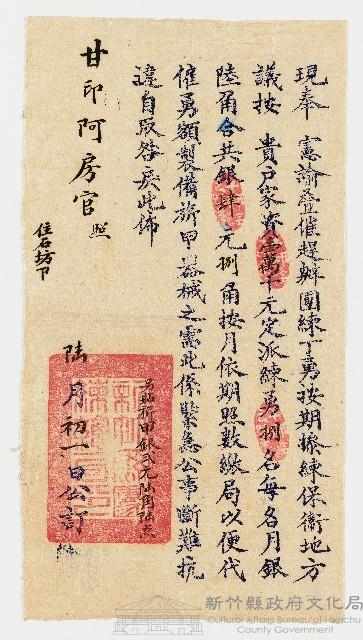 現奉 憲諭疊催趕辦團練丁勇按期操練保衛地方
議按 貴戶家資壹萬千元定派練勇捌名每名月銀
陸角合共銀肆元捌角按月依期照數繳局以便代
催勇額製備旂甲器械之需此係緊急公事斷難抗
違自取咎戾此佈
甘印阿房官 照
住石坊下
陸月初一日公訂
新竹縣政府文化局
Cultural Affairs Bureau of Hsinchu
County Government